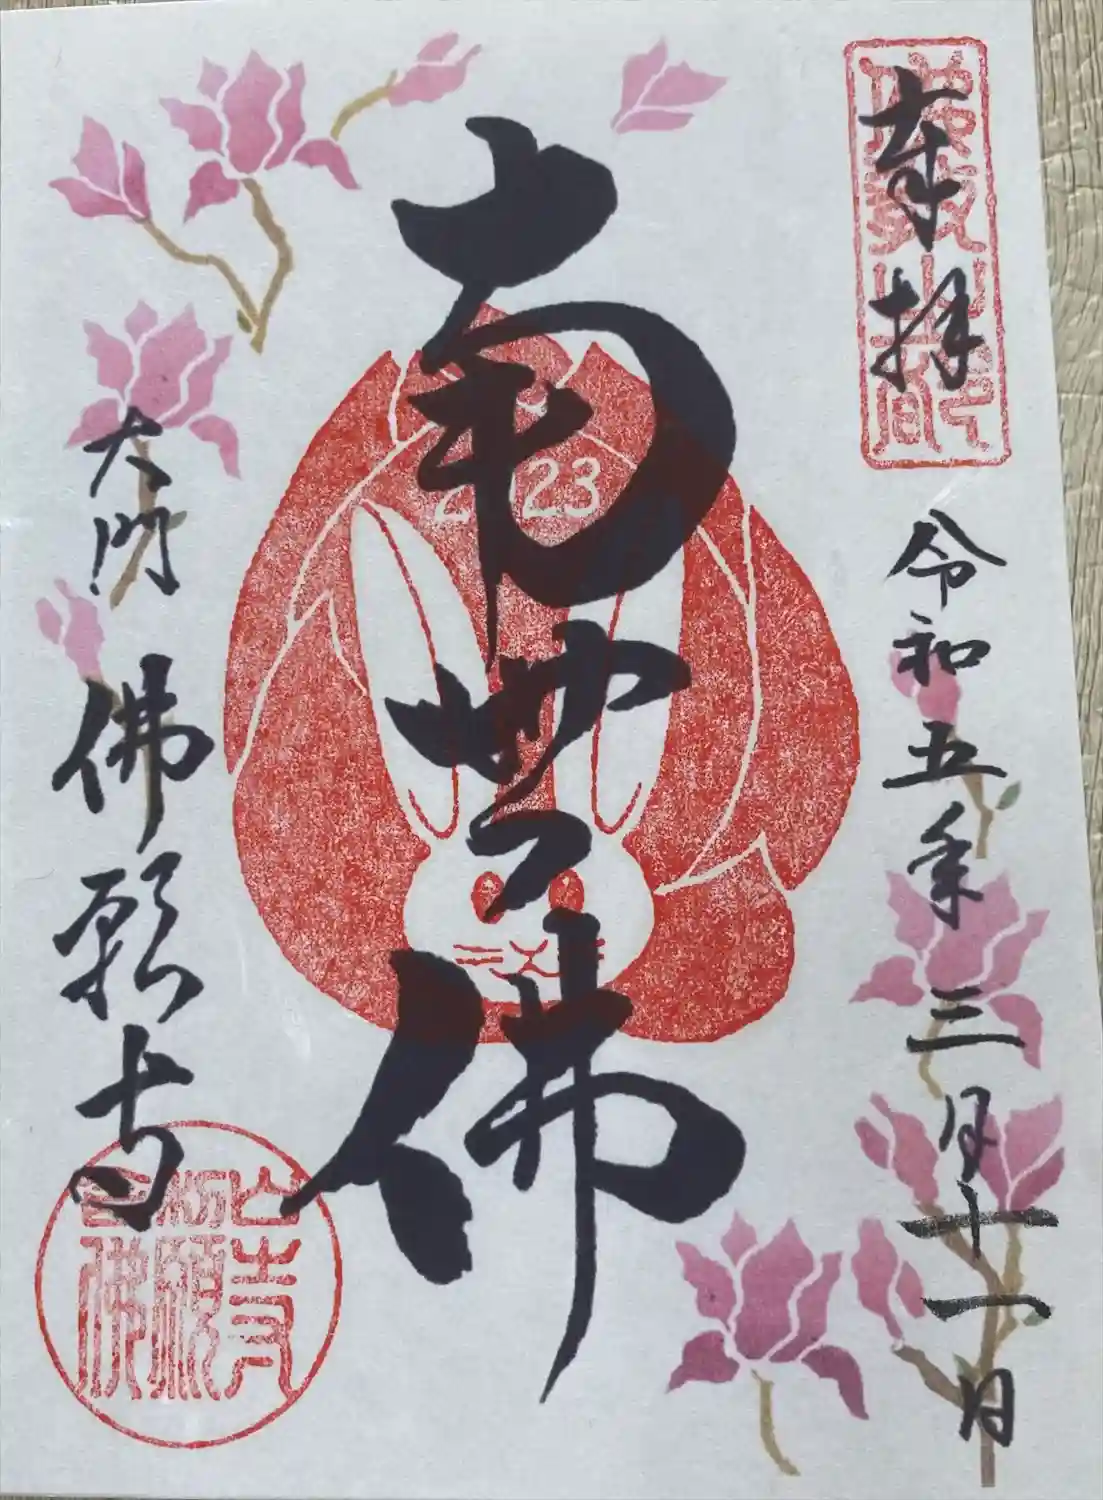 奉拝
令和五年三月十一日
南無佛
2023
大門
佛願寺